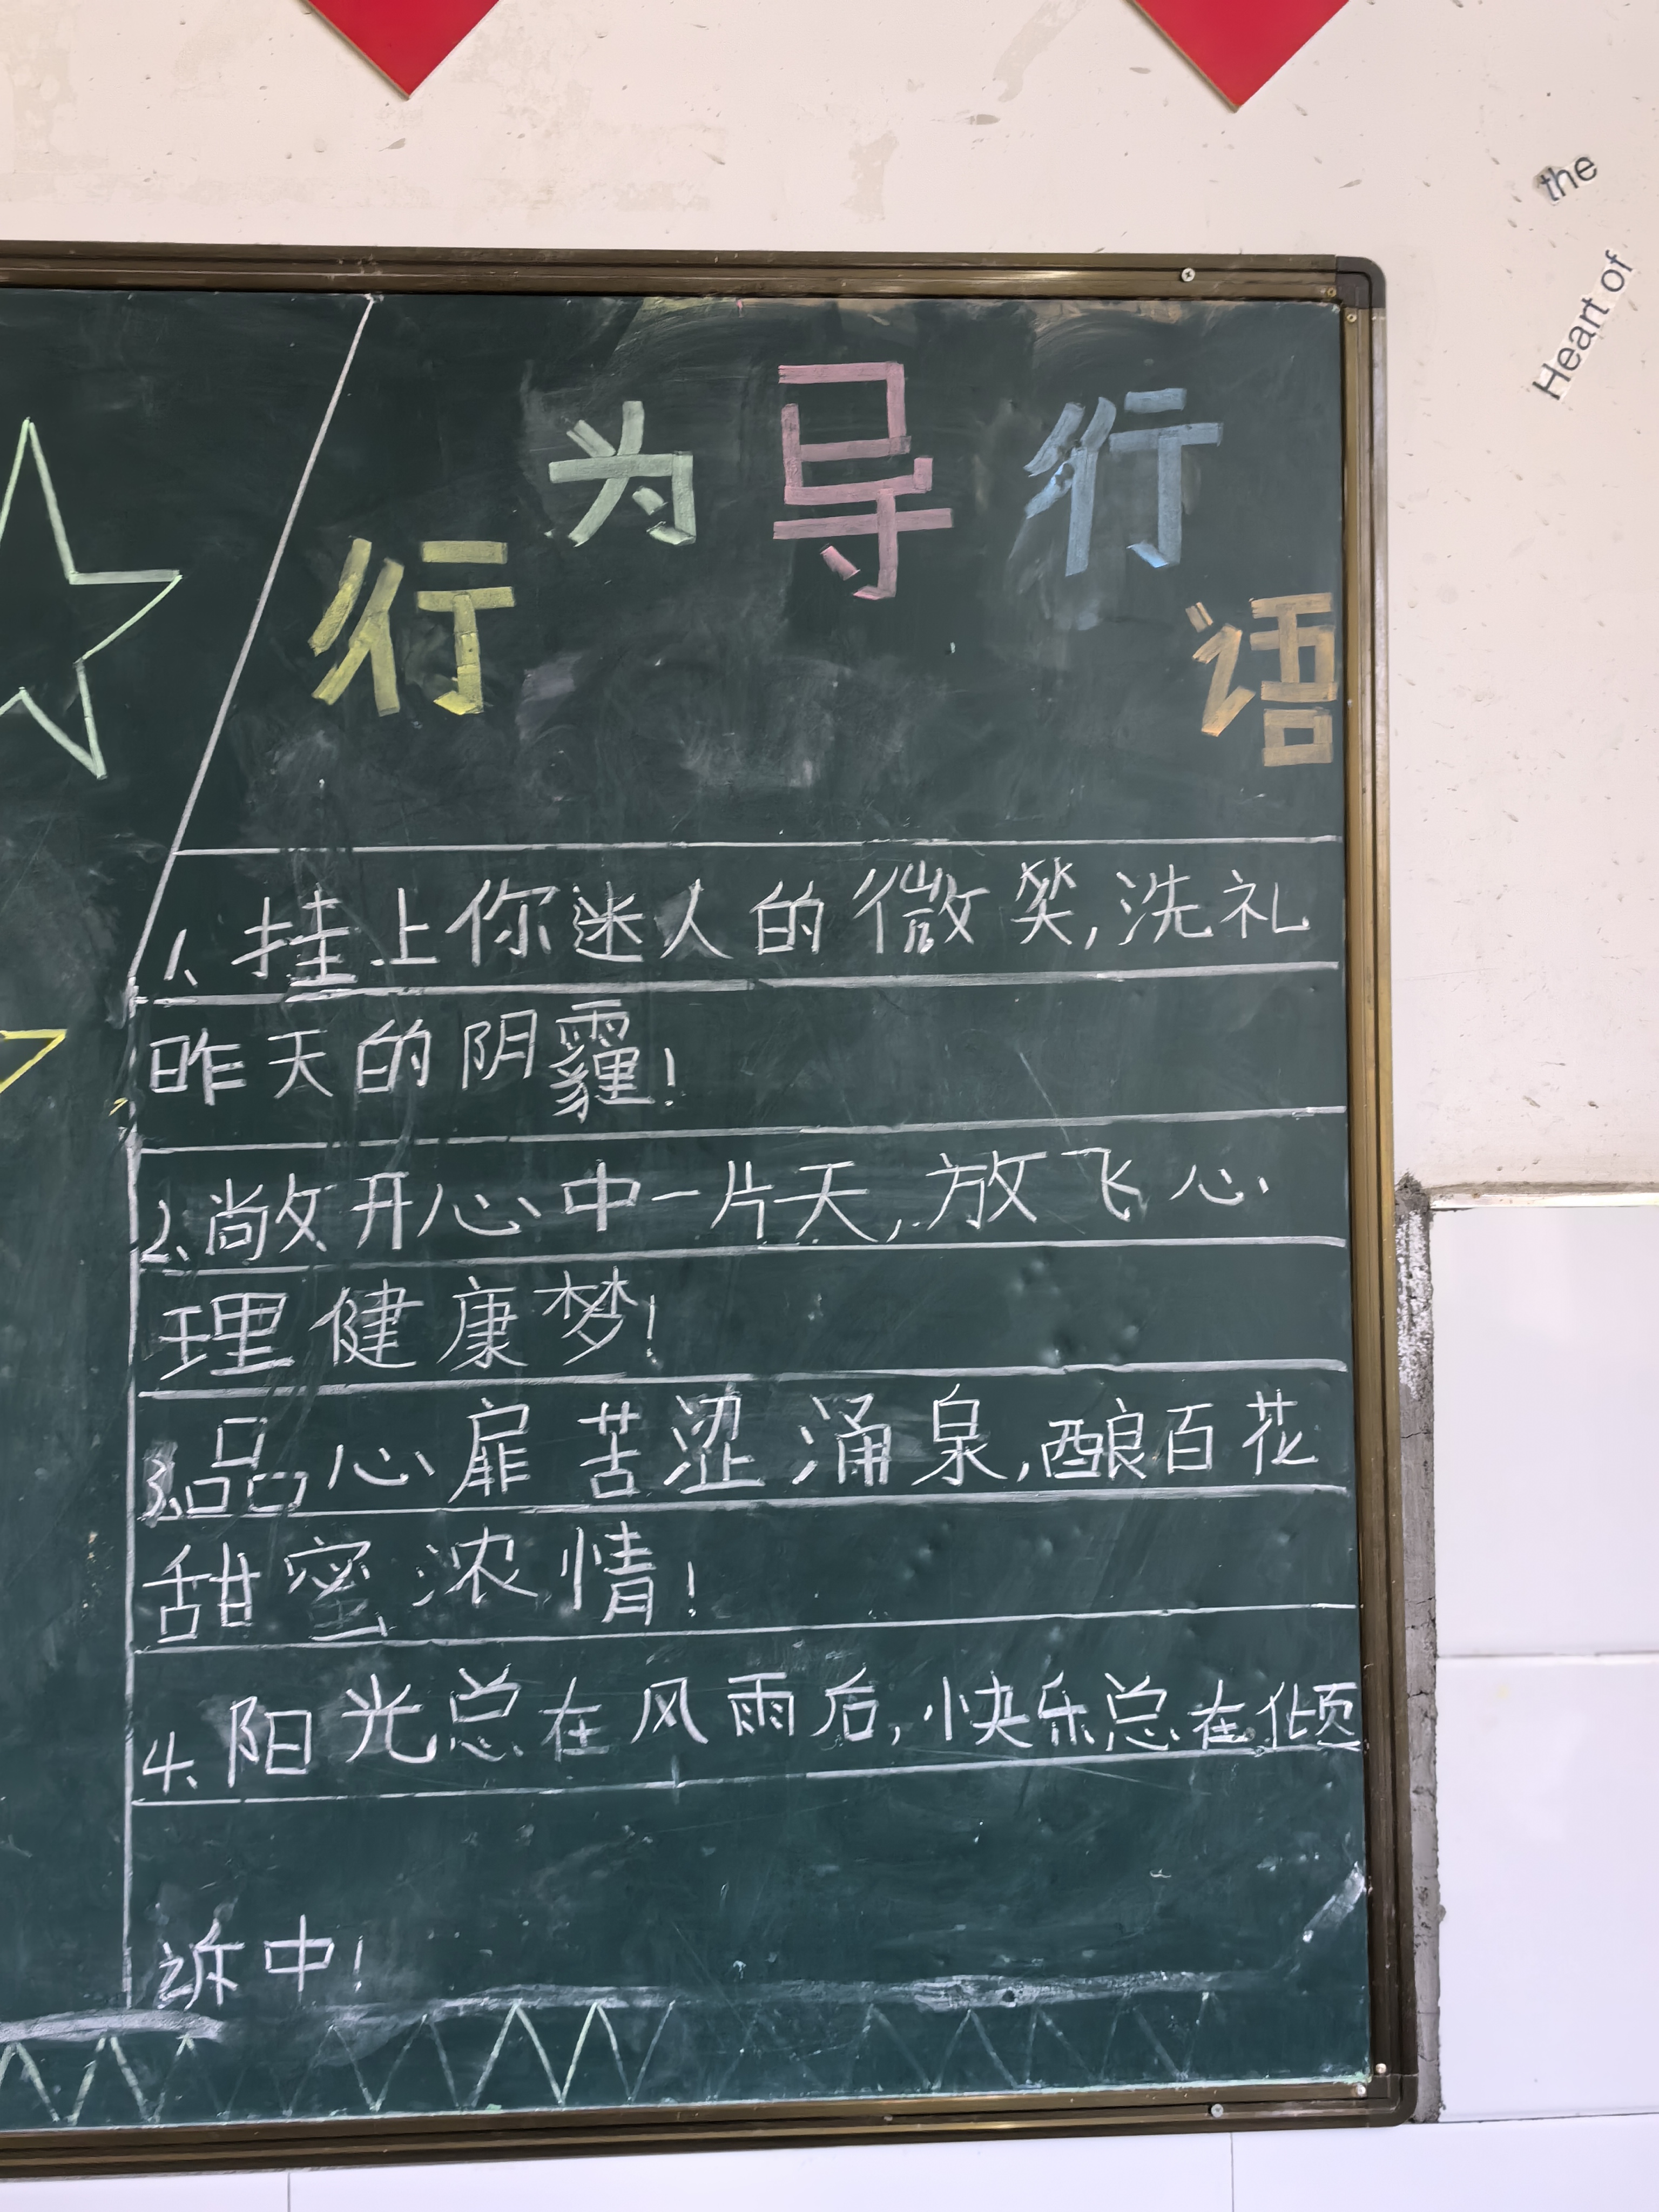 the
Heart of
行为导行语
1、挂上你迷人的微笑,洗礼
昨天的阴霾!
2、敞开心中一片天,放飞心
理健康梦!
3、品心扉苦涩涌泉,酿百花
甜蜜浓情!
4、阳光总在风雨后,快乐总在倾
诉中!